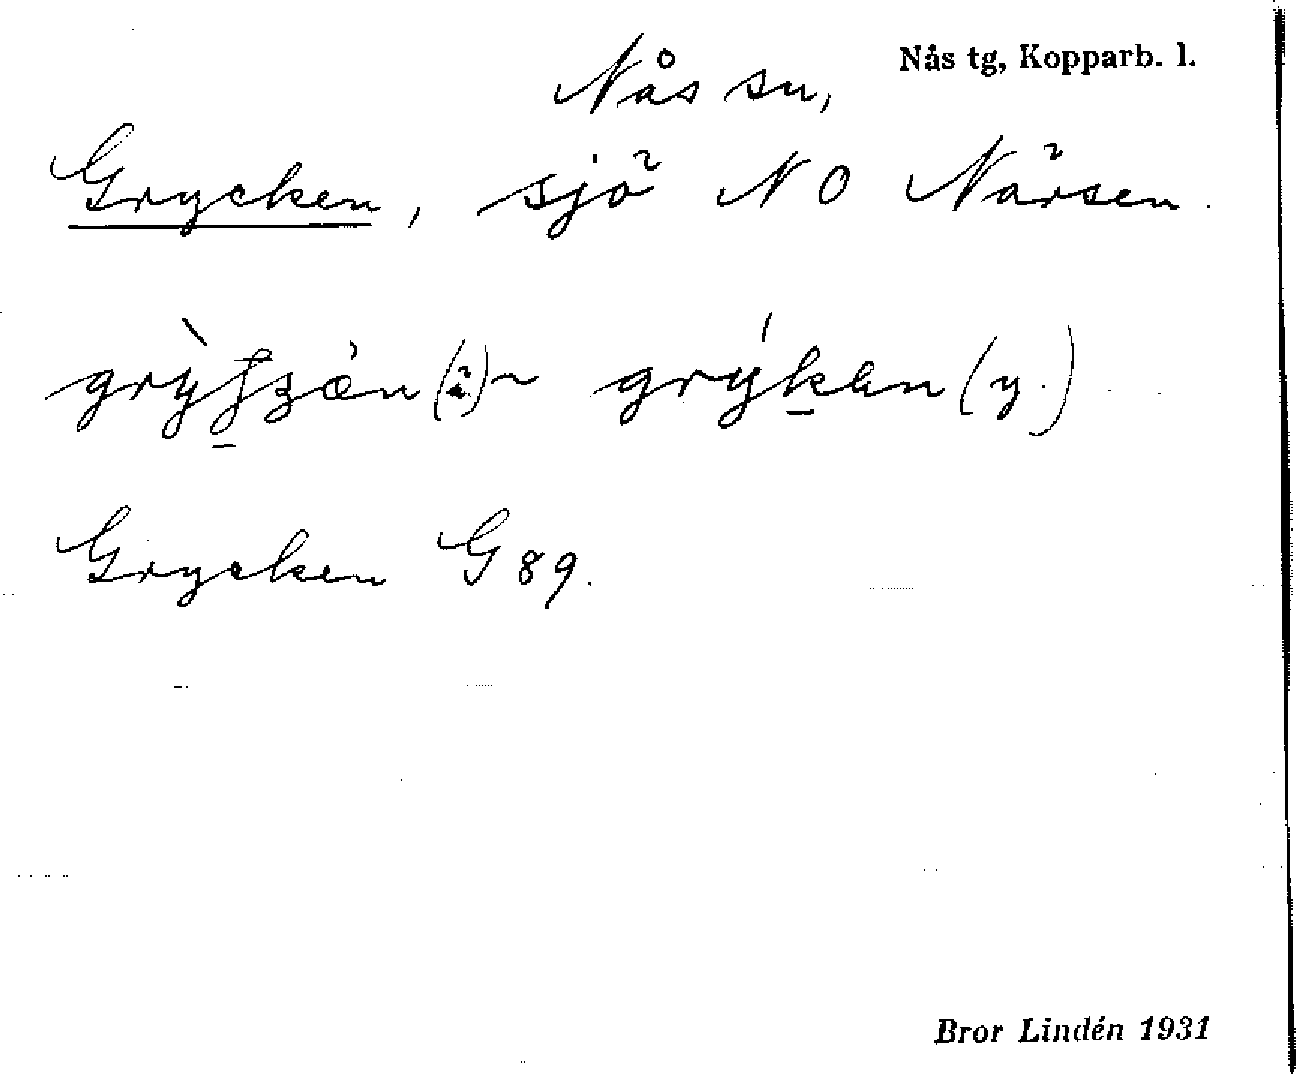 Nås tg, Kopparb. l.
Nås sn,
Grycken, sjö N O Närsen.
grýkan (y.)
Grycken G 89.
Bror Lindén 1931